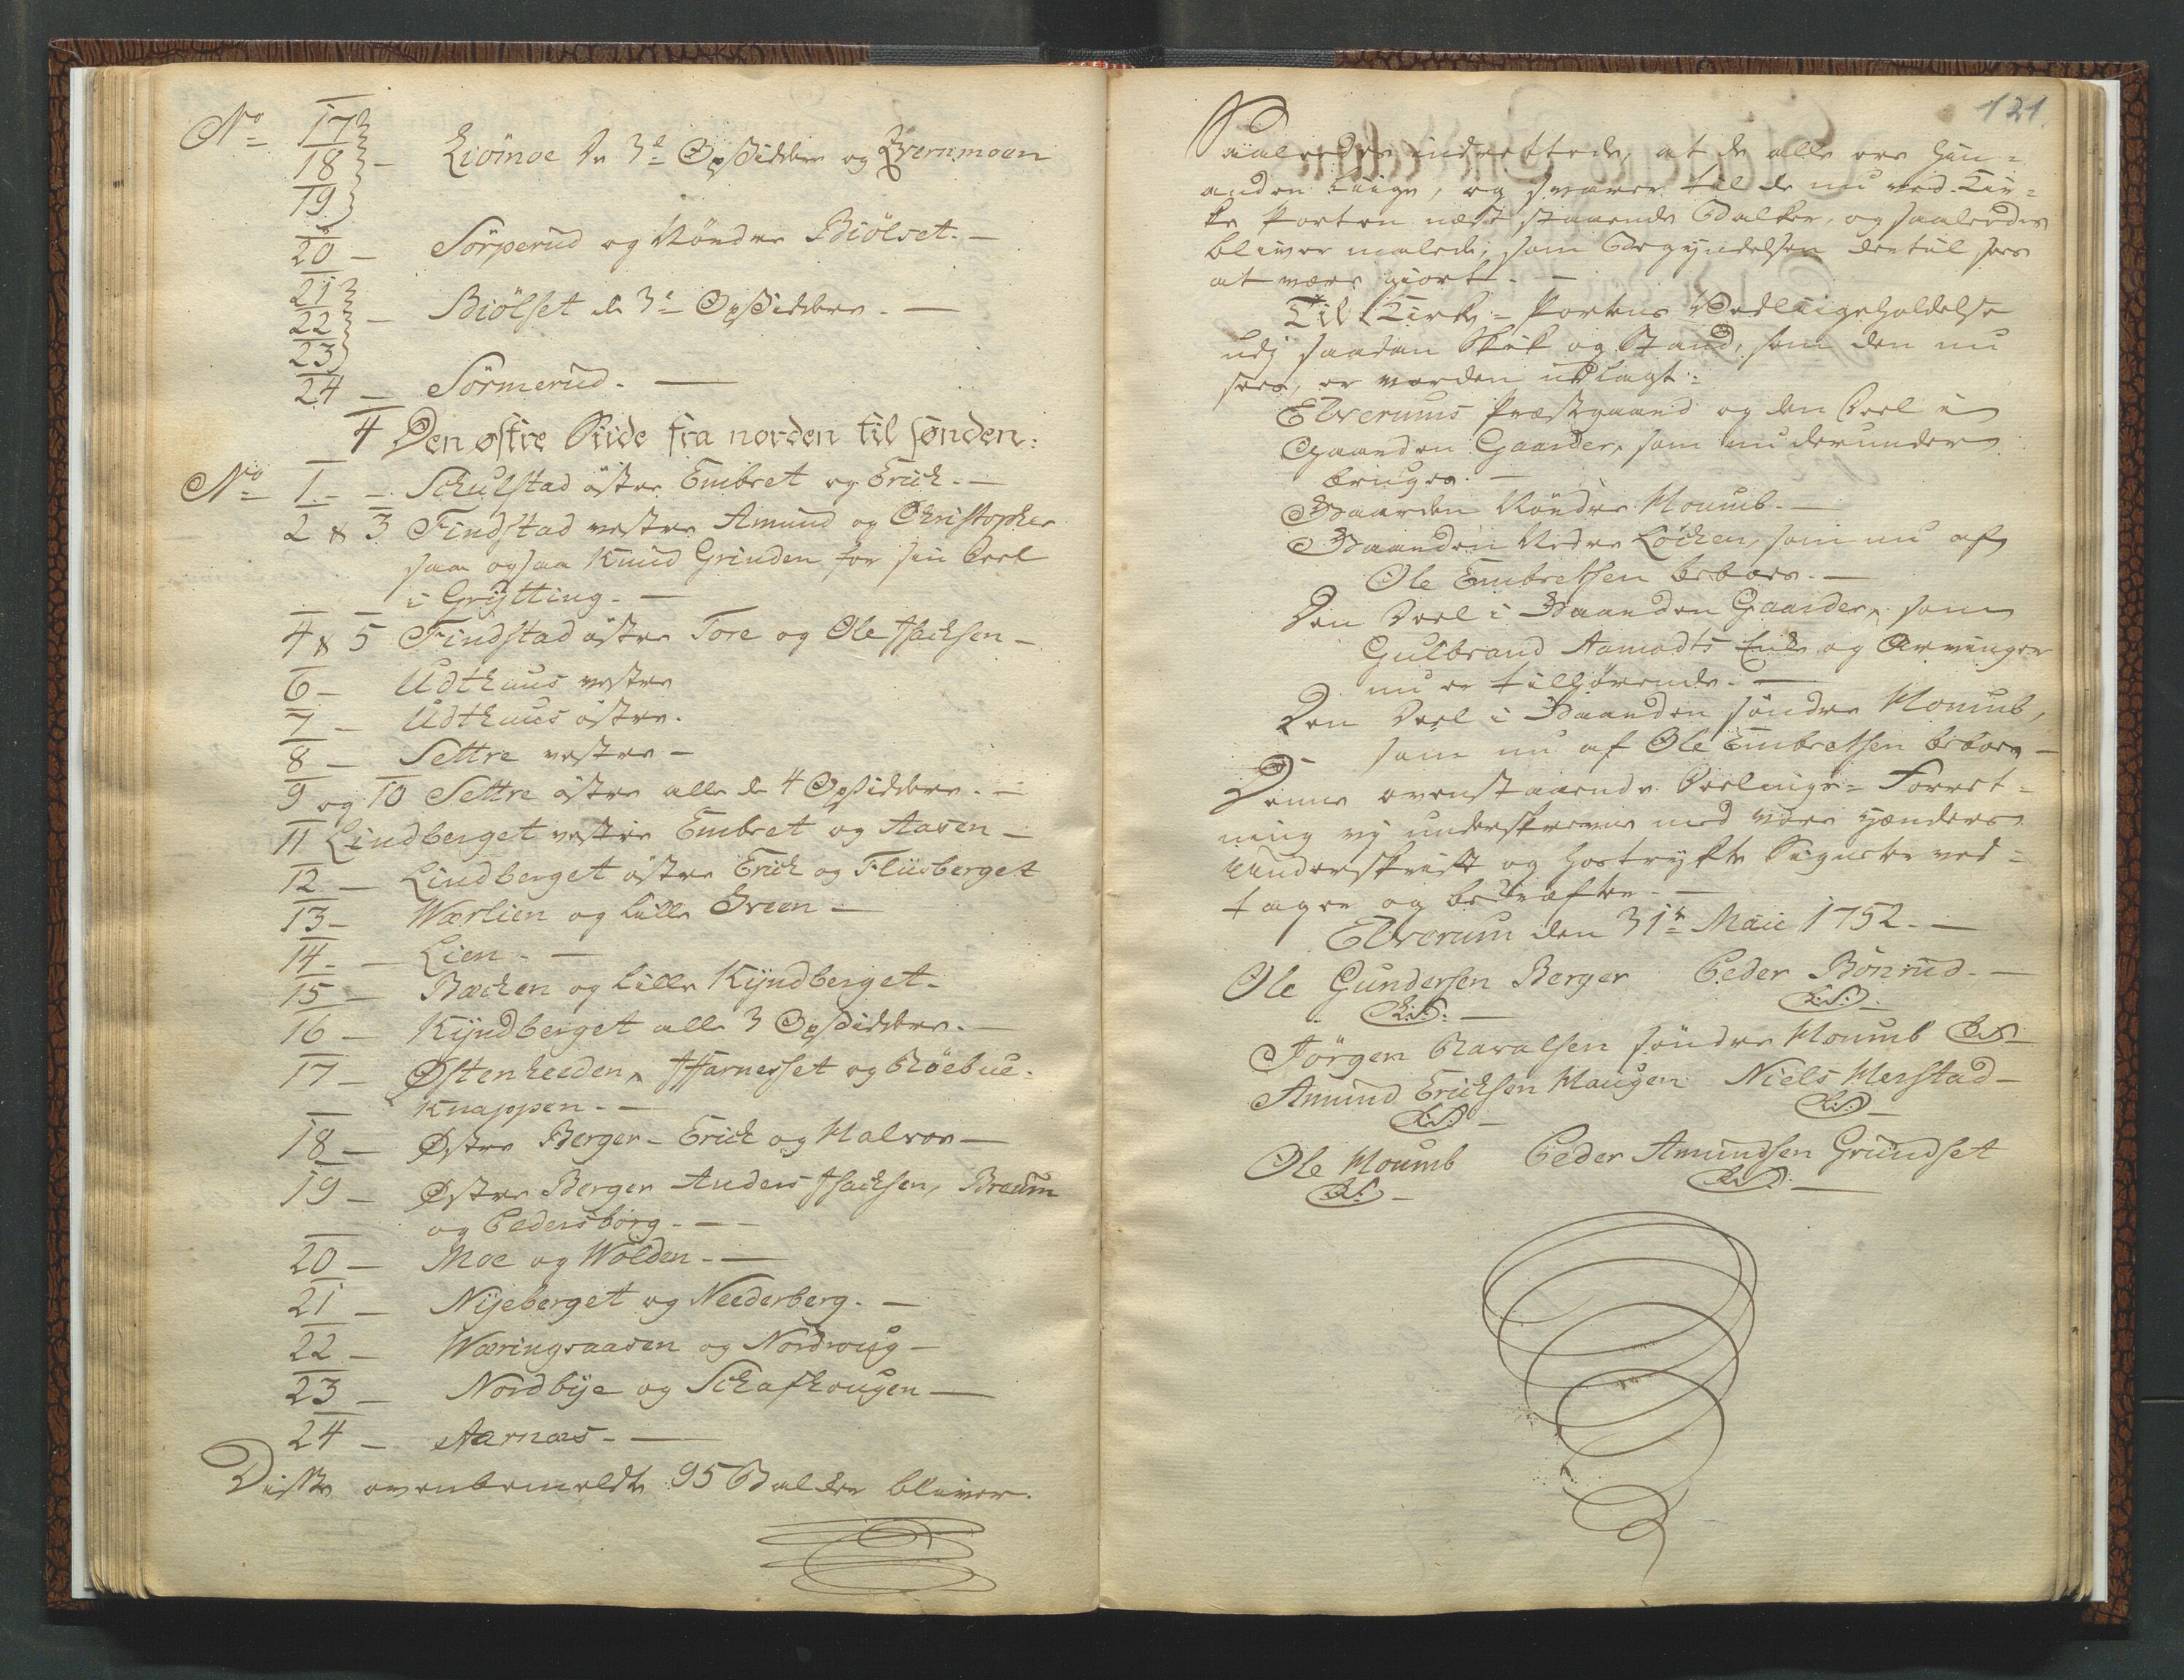 No 17
18 - Liömoe de 3de Opsiddere og Qvernmoen
19
20 - Sörperud og Nöndre Biölset. -
21
22 - Biölset de 3de Opsiddere. -
23
24 - Sörmerud. -
4 Den østre Siide fra norden til sønden:
No 1 - - Schulstad östre Embret og Erich. -
2 & 3 Findstad vestre Amund og Christopher
saa ogsaa Knud Grinden for sin Deel
i Grÿtting. -
4 & 5 Findstad östre Tore og Ole Isachsen -
6 - Udthuus vestre
7 - Udthuus östre.
8 - Settre vestre -
9 og 10 Settre östre alle de 4 Opsiddere. -
11 Lindberget vestre Embret og Aasen -
12 - Lindberget östre Erich og Fliisberget
13 - Wærlien og lille Green -
14 - - Lien. -
15 - Bæcken og lille Kÿndberget.
16 - Kÿndberget alle 3 Opsiddere. -
17 - Østenheeden, Hfarnesset og Röebue-
Knappen. -
18 - Østre Berger - Erich og Halvor -
19 - Østre Berger Anders Isachsen, Braüm
og Pedersborg. -
20 - Moe og Wolden. -
21 - Nÿeberget og Neederberg. -
22 - Wæringsaasen og Nordroug -
23 - Nordbÿe og Schafhougen -
24 - Aarnæs - -
Disse ovenbemeldte 95 Balker bliver.
121.
Saaleedes indrettede, at de alle ere hin-
anden liige, og svarer til de nu ved Kir-
ke Porten næst staaende Balker, og saaleedes
bliver malede, som Begyndelsen dertil sees
at være giort. -
Til Kirke-Portens Vedliigeholdelse
udj saadan Skik og Stand, som den nu
sees, er vorden udlagt:
Elverums Præstgaard og den Deel i
Gaarden Gaarder, som nu derunder
bruges. -
Gaarden Nöndre Houmb. -
Gaarden Nedre Löcken, som nu af
Ole Embretsen beboes. -
Den Deel i Gaarden Gaarder, som
Gulbrand Aamodts Enke og Arvinger
nu er tilhörende. -
Den Deel i Gaarden söndre Houmb,
som nu af Ole Embretsen beboes -
Denne ovenstaaende Deelings-Forret-
ning vj underskrevne med vore hænders
Underskrift og hostrykte Signeter ved-
tager og bekræfter. -
Elverum den 31te Maii 1752. -
Ole Gundersen Berger Peder Bönrud. -
L.S. - L.S.
Jörgen Pavalsen söndre Houmb L.S. -
Amund Erichsen Haugen Niels Herstad -
L.S. - L.S. -
Ole Houmb Peder Amundsen Grundset
L.S. - L.S. -